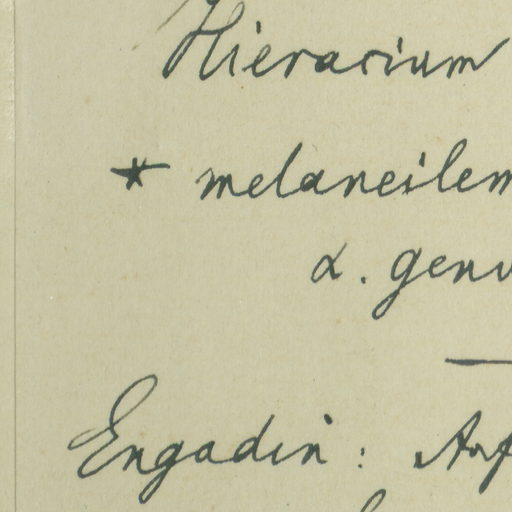 Hieracium
* melaneilem
α. genu
Engadin: Auf